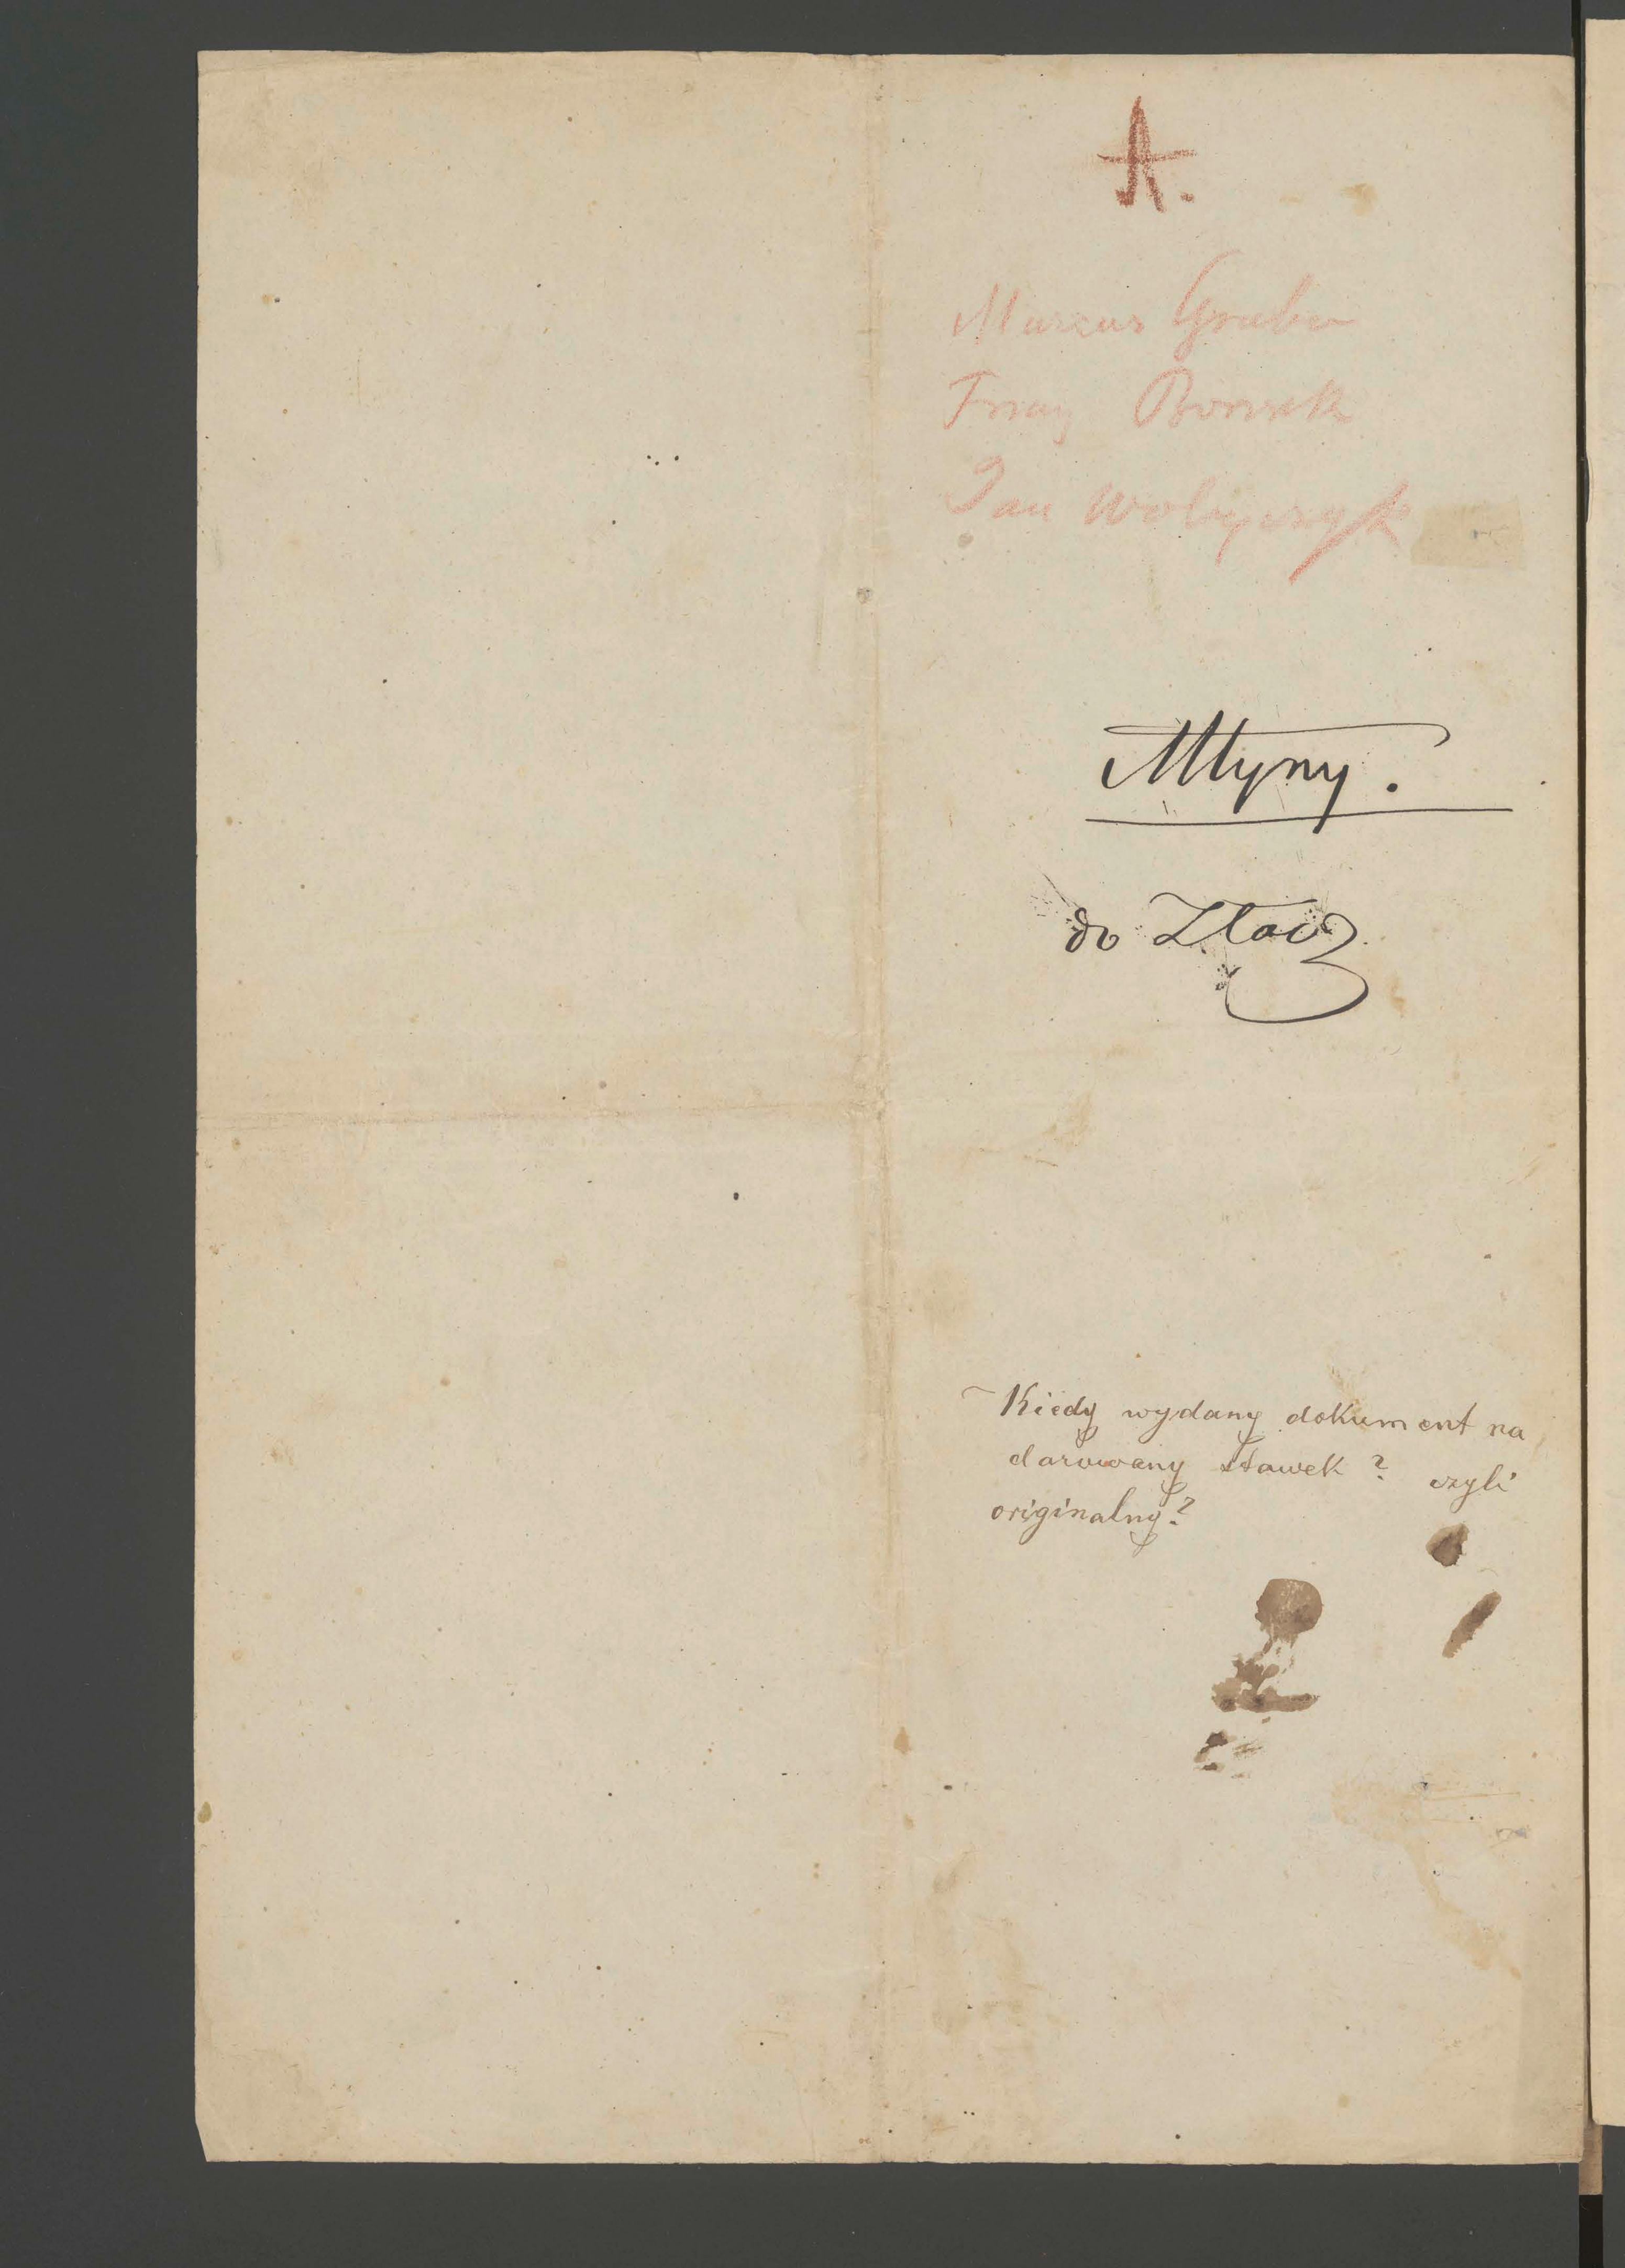 A.
Marcus Gruber
Franz
Jan
Młyny.
do
Kiedy wydany dokument na
darowany stawek? czyli
originalny?